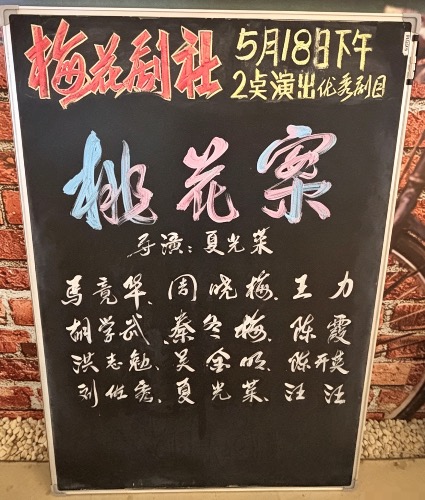 梅花剧社
5月18日下午
2点演出优秀剧目
桃花案
导演：夏光荣
马竟华、周晓梅、王力
胡学武、蔡冬梅、陈霞
洪志勉、吴金明、陈开英
刘优秀、夏光荣、汪汪